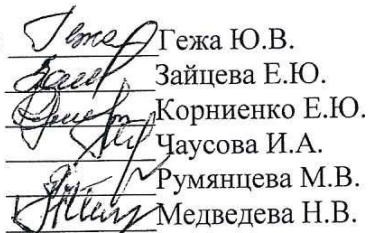 Гежа Ю.В.
Зайцева Е.Ю.
Корниенко Е.Ю.
Чаусова И.А.
Румянцева М.В.
Медведева Н.В.